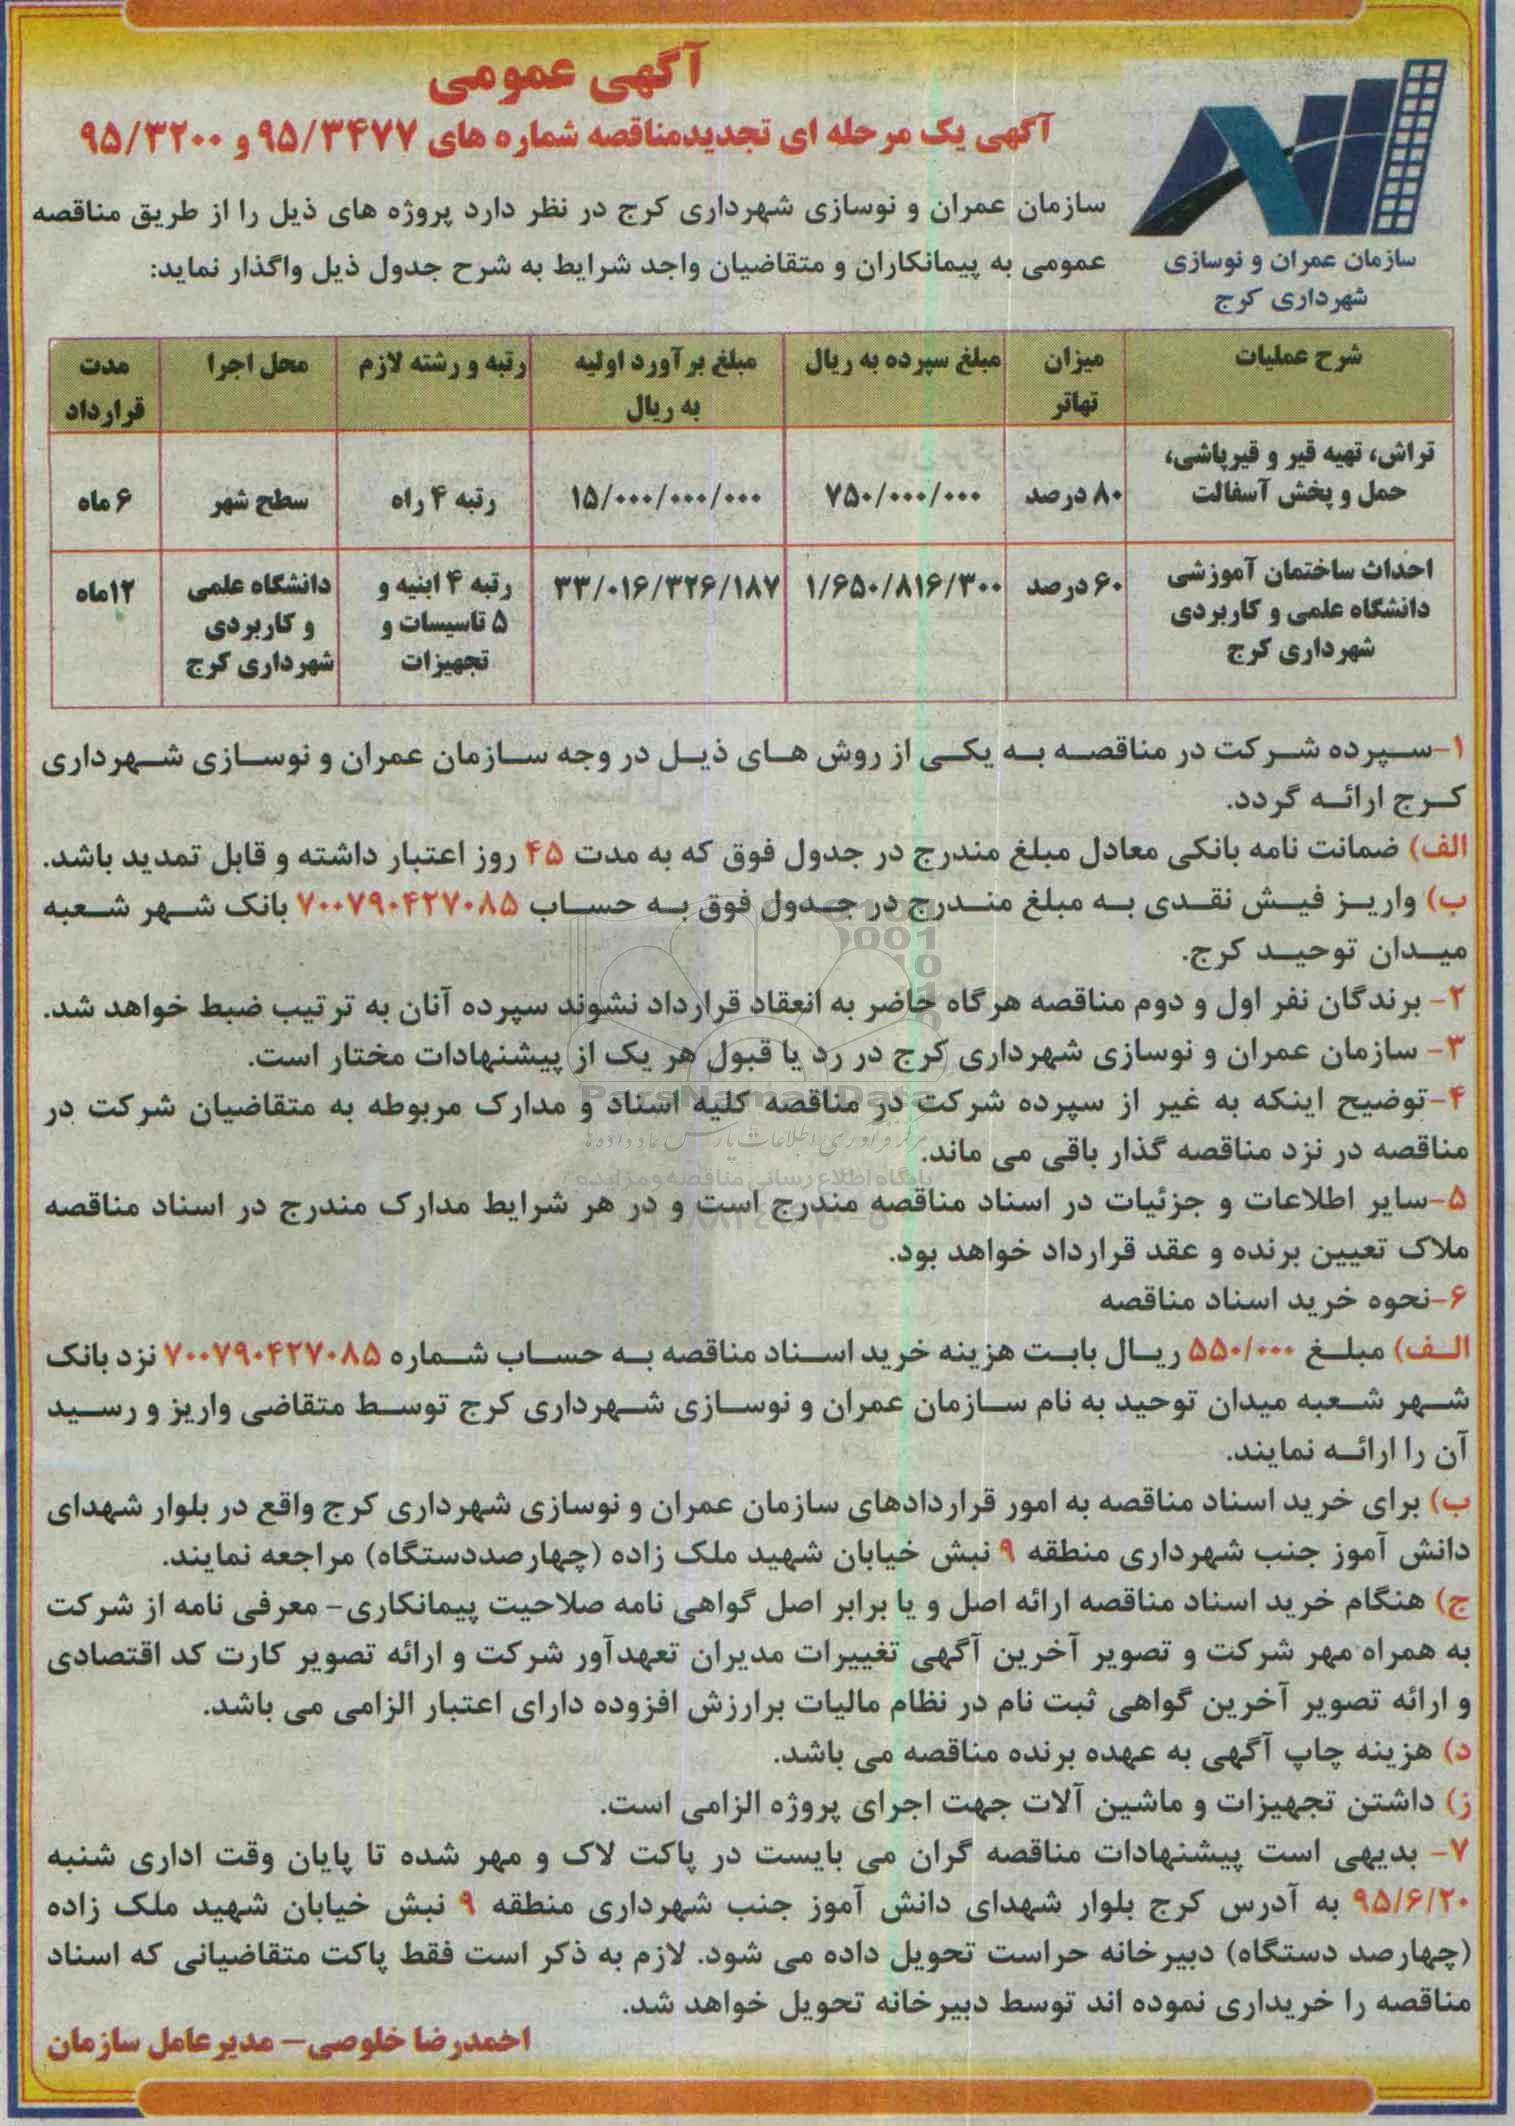 آگهی عمومی
آگهی یک مرحله ای تجدیدمناقصه شماره های ۹۵/۳۴۷۷ و ۹۵/۳۲۰۰
سازمان عمران و نوسازی
شهرداری کرج
سازمان عمران و نوسازی شهرداری کرج در نظر دارد پروژه های ذیل را از طریق مناقصه
عمومی به پیمانکاران و متقاضیان واجد شرایط به شرح جدول ذیل واگذار نماید:
شرح عملیات | میزان تهاتر | مبلغ سپرده به ریال | مبلغ برآورد اولیه به ریال | رتبه و رشته لازم | محل اجرا | مدت قرارداد
تراش، تهیه قیر و قیرپاشی، حمل و پخش آسفالت | ۸۰ درصد | ۷۵۰/۰۰۰/۰۰۰ | ۱۵/۰۰۰/۰۰۰/۰۰۰ | رتبه ۴ راه | سطح شهر | ۶ ماه
احداث ساختمان آموزشی دانشگاه علمی و کاربردی شهرداری کرج | ۶۰ درصد | ۱/۶۵۰/۸۱۶/۳۰۰ | ۳۳/۰۱۶/۳۲۶/۱۸۷ | رتبه ۴ ابنیه و ۵ تاسیسات و تجهیزات | دانشگاه علمی و کاربردی شهرداری کرج | ۱۲ماه
۱-سپرده شرکت در مناقصه به یکی از روش های ذیل در وجه سازمان عمران و نوسازی شهرداری
کرج ارائه گردد.
الف) ضمانت نامه بانکی معادل مبلغ مندرج در جدول فوق که به مدت ۴۵ روز اعتبار داشته و قابل تمدید باشد.
ب) واریز فیش نقدی به مبلغ مندرج در جدول فوق به حساب ۷۰۰۷۹۰۴۲۷۰۸۵ بانک شهر شعبه
میدان توحید کرج.
۲- برندگان نفر اول و دوم مناقصه هرگاه حاضر به انعقاد قرارداد نشوند سپرده آنان به ترتیب ضبط خواهد شد.
۳- سازمان عمران و نوسازی شهرداری کرج در رد یا قبول هر یک از پیشنهادات مختار است.
۴-توضیح اینکه به غیر از سپرده شرکت در مناقصه کلیه اسناد و مدارک مربوطه به متقاضیان شرکت در
مناقصه در نزد مناقصه گذار باقی می ماند.
۵-سایر اطلاعات و جزئیات در اسناد مناقصه مندرج است و در هر شرایط مدارک مندرج در اسناد مناقصه
ملاک تعیین برنده و عقد قرارداد خواهد بود.
۶-نحوه خرید اسناد مناقصه
الف) مبلغ ۵۵۰/۰۰۰ ریال بابت هزینه خرید اسناد مناقصه به حساب شماره ۷۰۰۷۹۰۴۲۷۰۸۵ نزد بانک
شهر شعبه میدان توحید به نام سازمان عمران و نوسازی شهرداری کرج توسط متقاضی واریز و رسید
آن را ارائه نمایند.
ب) برای خرید اسناد مناقصه به امور قراردادهای سازمان عمران و نوسازی شهرداری کرج واقع در بلوار شهدای
دانش آموز جنب شهرداری منطقه ۹ نبش خیابان شهید ملک زاده (چهارصددستگاه) مراجعه نمایند.
ج) هنگام خرید اسناد مناقصه ارائه اصل و یا برابر اصل گواهی نامه صلاحیت پیمانکاری- معرفی نامه از شرکت
به همراه مهر شرکت و تصویر آخرین آگهی تغییرات مدیران تعهدآور شرکت و ارائه تصویر کارت کد اقتصادی
و ارائه تصویر آخرین گواهی ثبت نام در نظام مالیات برارزش افزوده دارای اعتبار الزامی می باشد.
د) هزینه چاپ آگهی به عهده برنده مناقصه می باشد.
ز) داشتن تجهیزات و ماشین آلات جهت اجرای پروژه الزامی است.
۷- بدیهی است پیشنهادات مناقصه گران می بایست در پاکت لاک و مهر شده تا پایان وقت اداری شنبه
۹۵/۶/۲۰ به آدرس کرج بلوار شهدای دانش آموز جنب شهرداری منطقه ۹ نبش خیابان شهید ملک زاده
(چهارصد دستگاه) دبیرخانه حراست تحویل داده می شود. لازم به ذکر است فقط پاکت متقاضیانی که اسناد
مناقصه را خریداری نموده اند توسط دبیرخانه تحویل خواهد شد.
احمدرضا خلوصی- مدیرعامل سازمان